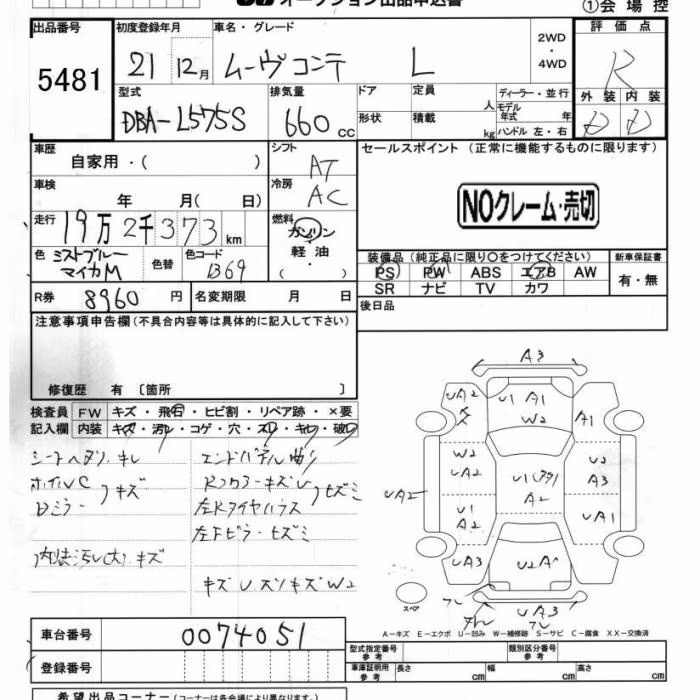 オークション出品申込書
①会場控
出品番号
5481
初度登録年月
21 12月
車名・グレード
ムーヴ コンテ L
2WD
・
4WD
評価点
R
外装 内装
D D
型式
DBA-L575S
排気量
660 cc
ドア
定員
人
ディーラー・並行
モデル
年式 年
形状
積載
kg
ハンドル 左・右
車歴
自家用・( )
シフト
AT
セールスポイント (正常に機能するものに限ります)
NOクレーム・売切
車検
年 月( 日)
冷房
AC
走行
19万2千373 km
燃料
ガソリン
・
軽油
( )
色
ミストブルー
マイカM
色替
色コード
B69
装備品 (純正品に限り○をつけてください)
PS PW ABS エアB AW
SR ナビ TV カワ
新車保証書
有・無
R券 8960 円
名変期限 月 日
後日品
注意事項申告欄 (不具合内容等は具体的に記入して下さい)
修復歴 有 〔箇所 〕
検査員
記入欄
FW キズ・飛石・ヒビ割・リペア跡・×要
内装 キズ・汚レ・コゲ・穴・スレ・キレ・破レ
シートヘタリ キレ
ホイルC
Dミラー
キズ
内装汚レ(大) キズ
エンドパネル曲り
左Rタイヤハウス
左Fピラー ヒズミ
キズ U ズリキズ W2
A3
UA2
U1 A1
W2
A1
W2
UA2
U2
A3
UA2
U1(多数)
A2
U1
A2
UA1
UA3
U2
UA3
スペア
A-キズ E-エクボ U-凹み W-補修跡 S-サビ C-腐食 XX-交換済
車台番号
0074051
登録番号
型式指定番号
参考
類別区分番号
参考
車庫証明用
参考
長さ cm
幅 cm
高さ cm
希望出品コーナー (コーナーは各会場により異なります。)